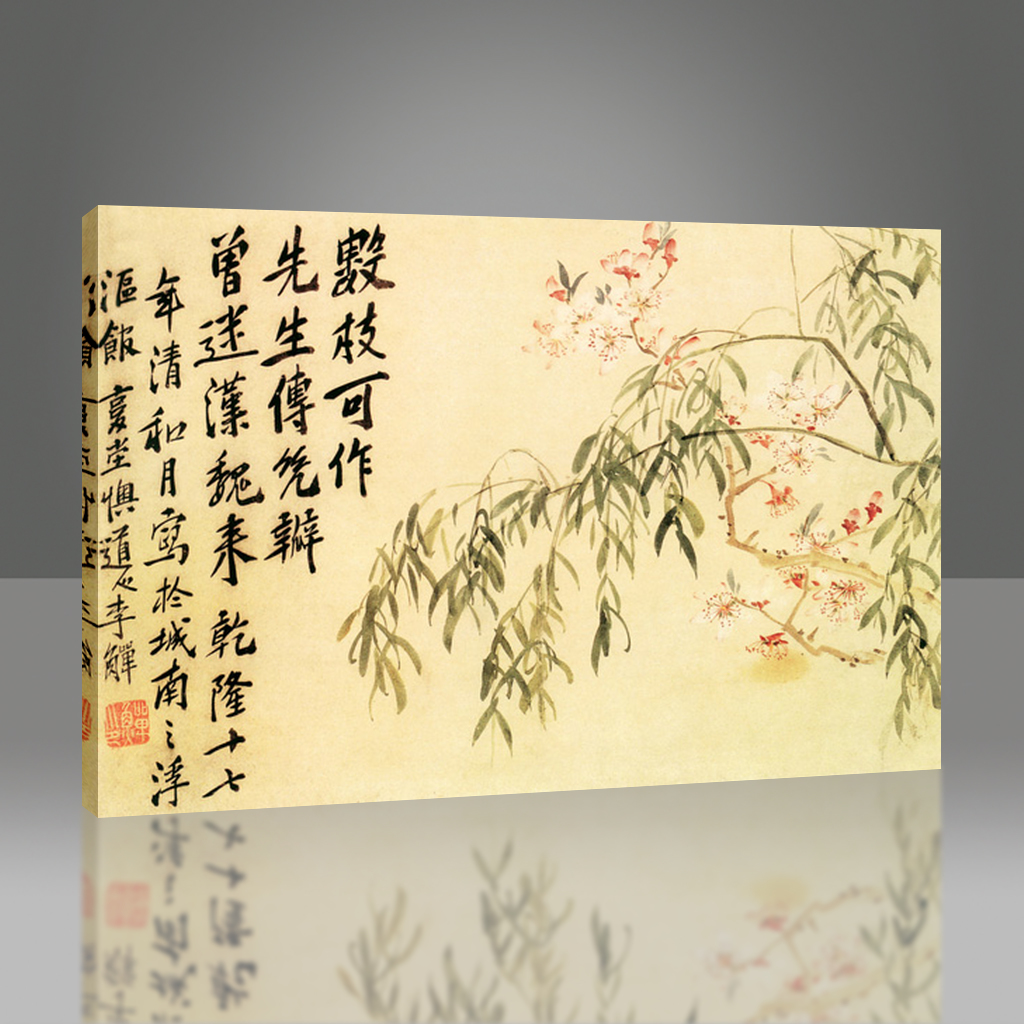 數枝可作
先生傳瓣
曾迷漢魏來 乾隆十七
年清和月寫於城南之浮
漚館 复堂懊道人李鱓